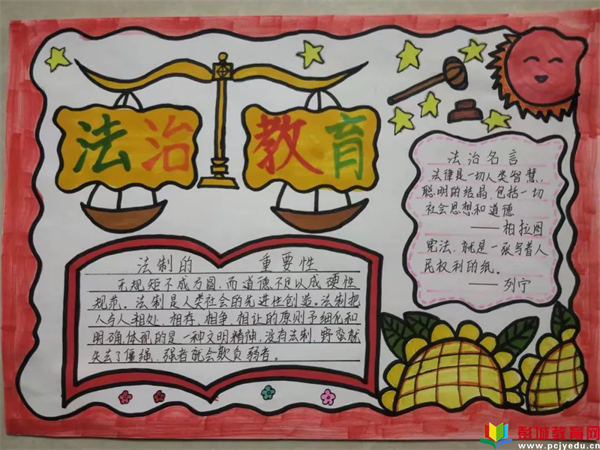 法治教育
法制的 重要性
无规矩不成方圆,而道德不足以成硬性
规范。法制是人类社会的先进性创造。法制把
人与人相处、相存、相争、相让的原则予细化和
明确,体现的是一种文明精神,没有法制,野蛮就
失去了僵绳,强者就会欺负弱者。
法治名言
法律是一切人类智慧、
聪明的结晶,包括一切
社会思想和道德
——柏拉图
宪法,就是一张写着人
民权利的纸。
——列宁
彭城教育网
www.pcjyedu.cn